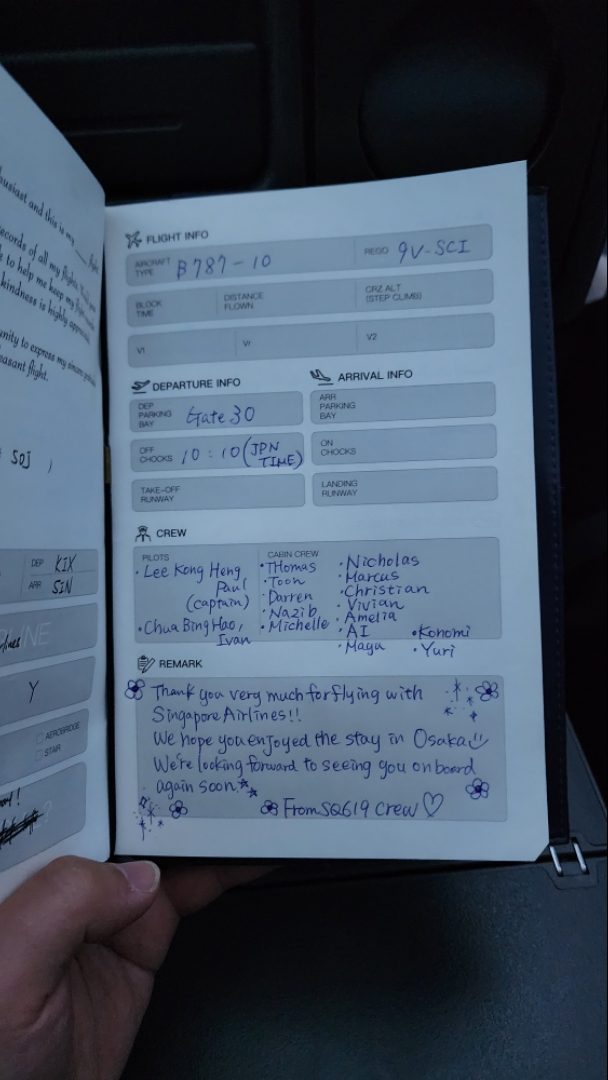 husiast and this is my ___ flight
records of all my flights.
to help me keep my flight
kindness is highly
unity to express my sincere
easant flight.
SOJ
DEP KIX
ARR SIN
Y
AEROBRIDGE
STAIR
FLIGHT INFO
AIRCRAFT TYPE B787-10 REGO 9V-SCI
BLOCK TIME DISTANCE FLOWN CRZ ALT (STEP CLIMB)
V1 Vr V2
DEPARTURE INFO
DEP PARKING BAY Gate 30
OFF CHOCKS 10:10 (JPN TIME)
TAKE-OFF RUNWAY
ARRIVAL INFO
ARR PARKING BAY
ON CHOCKS
LANDING RUNWAY
CREW
PILOTS
• Lee Kong Heng
Paul
(captain)
• Chua Bing Hao,
Ivan
CABIN CREW
• THomas
• Toon
• Darren
• Nazib
• Michelle
• Nicholas
• Marcus
• Christian
• Vivian
• Amelia
• AI
• Mayu
• Konomi
• Yuri
REMARK
Thank you very much for flying with
Singapore Airlines!!
We hope you enjoyed the stay in Osaka
We're looking forward to seeing you onboard
again soon
From SQ619 crew